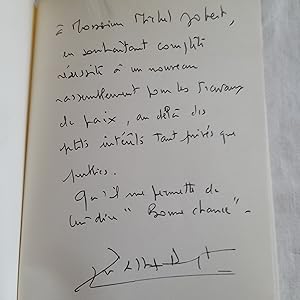 à Monsieur Michel Jobert,
en souhaitant complète
réussite à un nouveau
rassemblement pour les travaux
de paix, au delà des
ptits intérêts tant privés que
publics.
Qu'il me permette de
lui dire "Bonne chance".